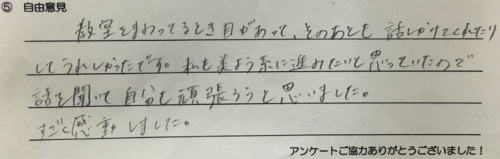 ⑤ 自由意見
教室をまわってるとき目があって、そのあとも 話しかけてくれたり
してうれしかったです。私も美よう系に進みたいと思っていたので
話を聞いて自分も頑張ろうと思いました。
すごく感動しました。
アンケートご協力ありがとうございました！